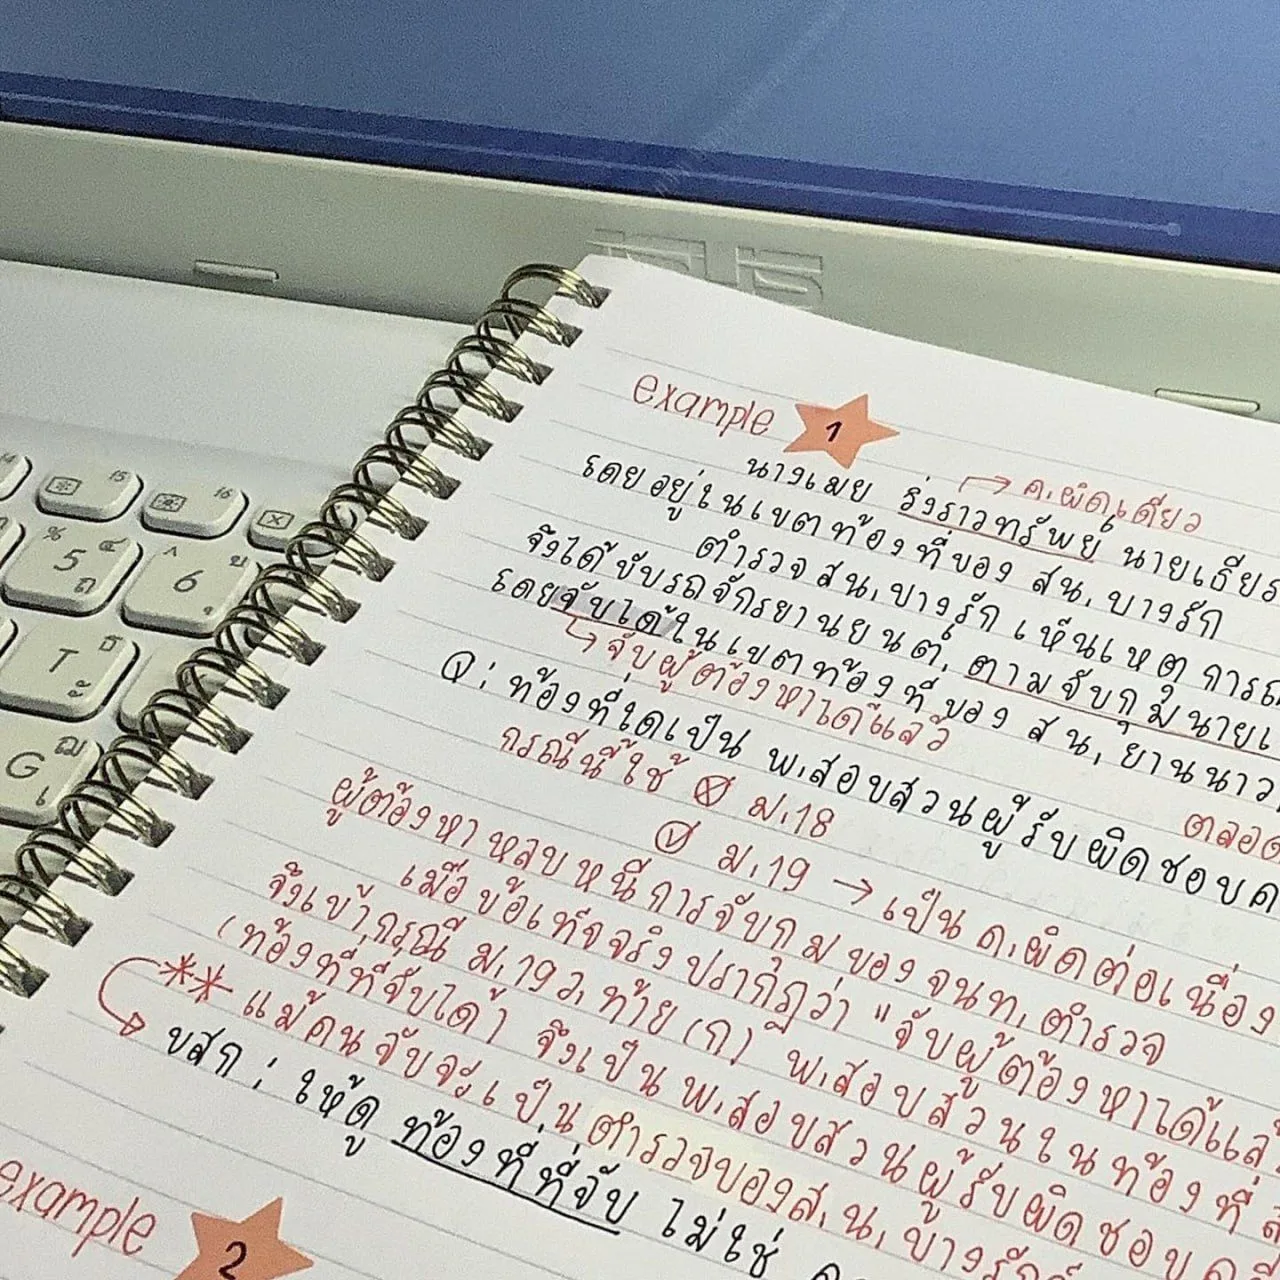 example 1
→ ค.ผิดเดียว
นางเมย วิ่งราวทรัพย์ นายเธียร
โดยอยู่ในเขตท้องที่ของ สน.บางรัก
ตำรวจ สน.บางรัก เห็นเหตุการณ์
จึงได้ขับรถจักรยานยนต์ ตามจับกุมนายเ
โดยจับได้ในเขตท้องที่ของ สน.ยานนาวา
↳ จับผู้ต้องหาได้แล้ว
Q : ท้องที่ใดเป็น พ.สอบสวนผู้รับผิดชอบค
ตลอด
กรณีนี้ใช้ ⓧ ม.18
ม.19 → เป็น ค.ผิดต่อเนื่อง
ผู้ต้องหาหลบหนีการจับกุมของจนท.ตำรวจ
เมื่อข้อเท็จจริงปรากฏว่า "จับผู้ต้องหาได้แล้ว
จึงเข้ากรณี ม.19 ว.ท้าย (ก) พ.สอบสวนในท้องที่
(ท้องที่ที่จับได้) จึงเป็น พ.สอบสวนผู้รับผิดชอบคดี
** แม้คนจับจะเป็นตำรวจของส.น.บางรัก
ขสก : ให้ดู ท้องที่ที่จับ ไม่ใช่
example 2
5
ถ
6
T
G
f5
f6